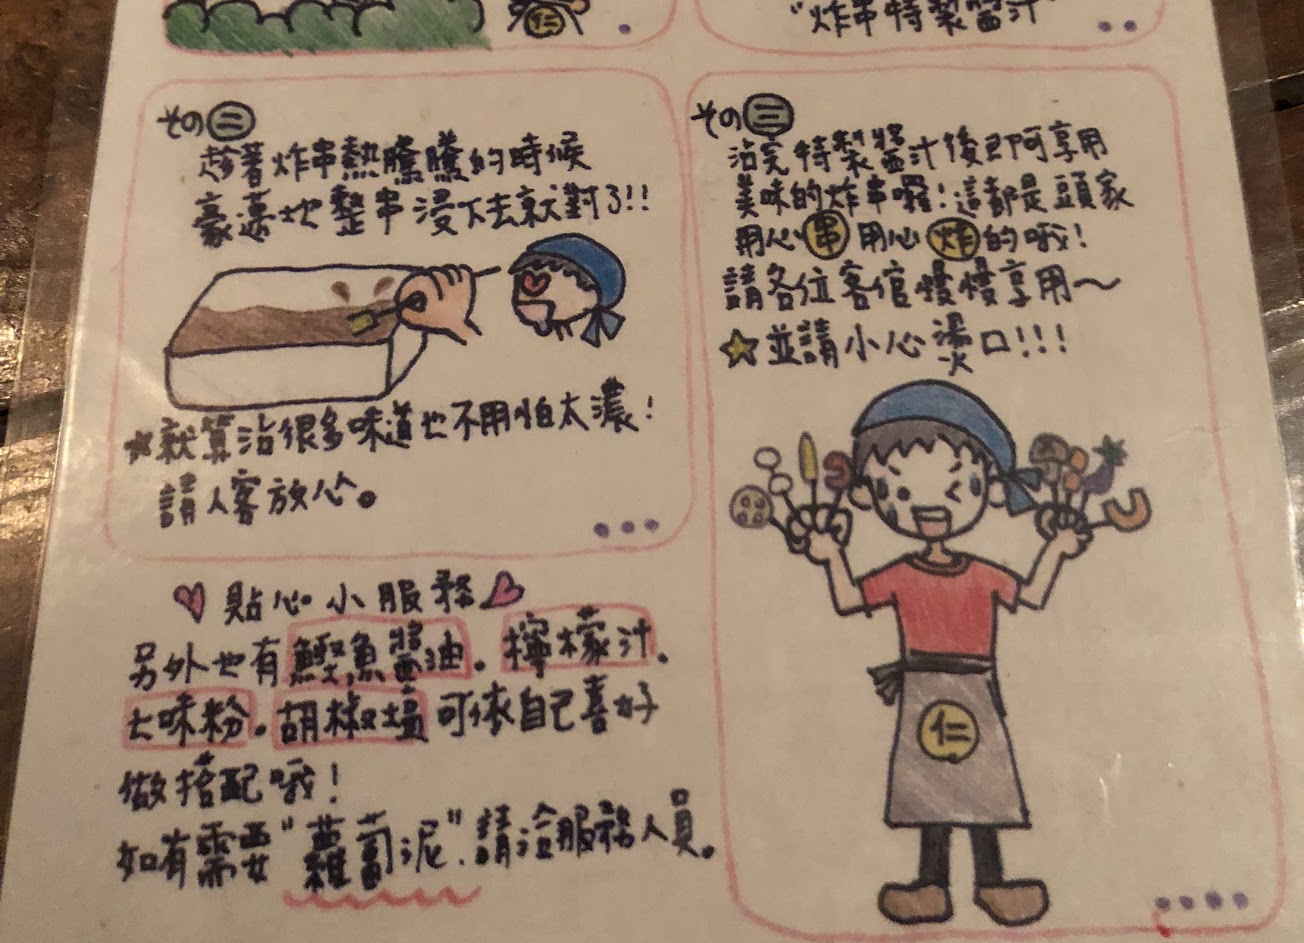 仁
"炸串特製醬汁"
その二
趁著炸串熱騰騰的時候
豪邁地整串浸下去就對了!!
★就算沾很多味道也不用怕太濃!
請人客放心。
♡貼心小服務♡
另外也有鰹魚醬油。檸檬汁。
七味粉。胡椒塩可依自己喜好
做搭配哦!
如有需要"蘿蔔泥",請洽服務人員。
その三
沾完特製醬汁後即可享用
美味的炸串囉!這都是頭家
用心串用心炸的哦!
請各位客倌慢慢享用～
☆並請小心燙口!!!
仁